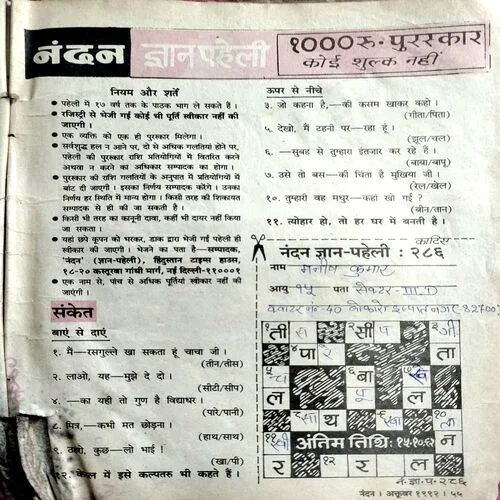 नंदन ज्ञान पहेली १००० रु. पुरस्कार
कोई शुल्क नहीं
नियम और शर्तें
● पहेली में १७ वर्ष तक के पाठक भाग ले सकते हैं।
● रजिस्ट्री से भेजी गई कोई भी पूर्ति स्वीकार नहीं की
जाएगी।
● एक व्यक्ति को एक ही पुरस्कार मिलेगा।
● सर्वशुद्ध हल न आने पर, दो से अधिक गलतियां होने पर,
पहेली की पुरस्कार राशि प्रतियोगियों में वितरित करने
अथवा न करने का अधिकार सम्पादक का होगा।
● पुरस्कार की राशि गलतियों के अनुपात में प्रतियोगियों में
बांट दी जाएगी। इसका निर्णय सम्पादक करेंगे। उनका
निर्णय हर स्थिति में मान्य होगा। किसी तरह की शिकायत
सम्पादक से ही की जा सकती है।
● किसी भी तरह का कानूनी दावा, कहीं भी दायर नहीं किया
जा सकता।
● यहां छपे कूपन को भरकर, डाक द्वारा भेजी गई पहेली ही
स्वीकार की जाएगी। भेजने का पता है—सम्पादक,
'नंदन' (ज्ञान-पहेली), हिंदुस्तान टाइम्स हाउस,
१८-२० कस्तूरबा गांधी मार्ग, नई दिल्ली-११०००१
● एक नाम से, पांच से अधिक पूर्तियां स्वीकार नहीं की
जाएंगी।
संकेत
बाएं से दाएं
१. मैं—रसगुल्ले खा सकता हूं चाचा जी।
(तीन/तीस)
२. लाओ, यह—मुझे दे दो।
(सीटी/सीप)
४. —का यही तो गुण है विद्याधर।
(पारे/पानी)
८. मित्र,—कभी मत छोड़ना।
(हाथ/साथ)
९. ठहरो, कुछ—लो भाई!
(खा/पी)
१२. केल में इसे कल्पतरु भी कहते हैं।
ऊपर से नीचे
३. जो कहना है,—की कसम खाकर कहो।
(गीता/पिता)
५. देखो, मैं टहनी पर—रहा हूं।
(झूल/चल)
६. —सुबह से तुम्हारा इंतजार कर रहे हैं।
(बाबा/बापू)
७. उसे तो बस—की चिंता है मुखिया जी।
(रेल/खेल)
१०. तुम्हारी वह मधुर—कहां खो गई?
(बीन/तान)
११. त्योहार हो, तो हर घर में बनती है।
काटिए
नंदन ज्ञान-पहेली : २८६
नाम मनीष कुमार
आयु १५ पता सेक्टर-III.D
क्वाटर नं-40 बोकारो इस्पात नगर-82700
१ ती स २ सी प ३ गी
४ पा र ता
५ च ६ बा ७ खे
ल पू ल
८ सा थ ९ १० ता
११ खी अंतिम तिथि: १५-१०.९२ न
र १२ र ल
नं.ज्ञा.प.२८६
नंदन । अक्टूबर १९९२ । ५५